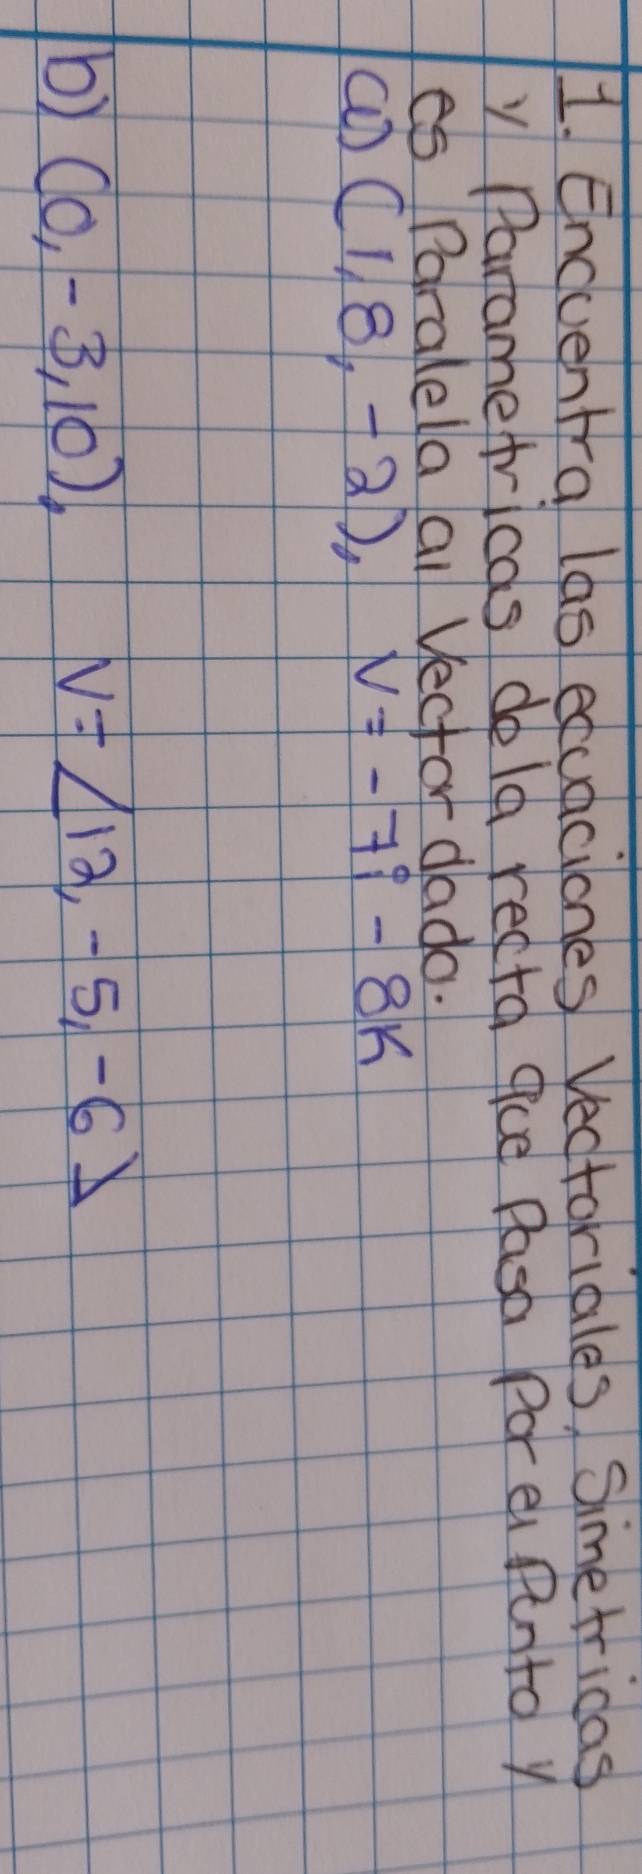 1. Encuentra las ecuaciones Vectoriales, Simetricas
y Parametricas de la recta que Pasa Por el Punto y
es Paralela al Vector dado.
a) (1, 8, -2), V = -7j - 8k
b) (0, -3, 10), V = <12, -5, -6>